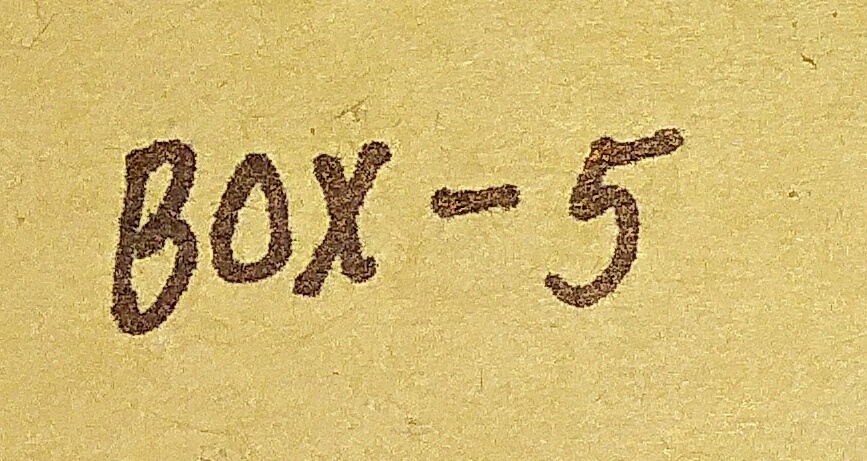 BOX - 5